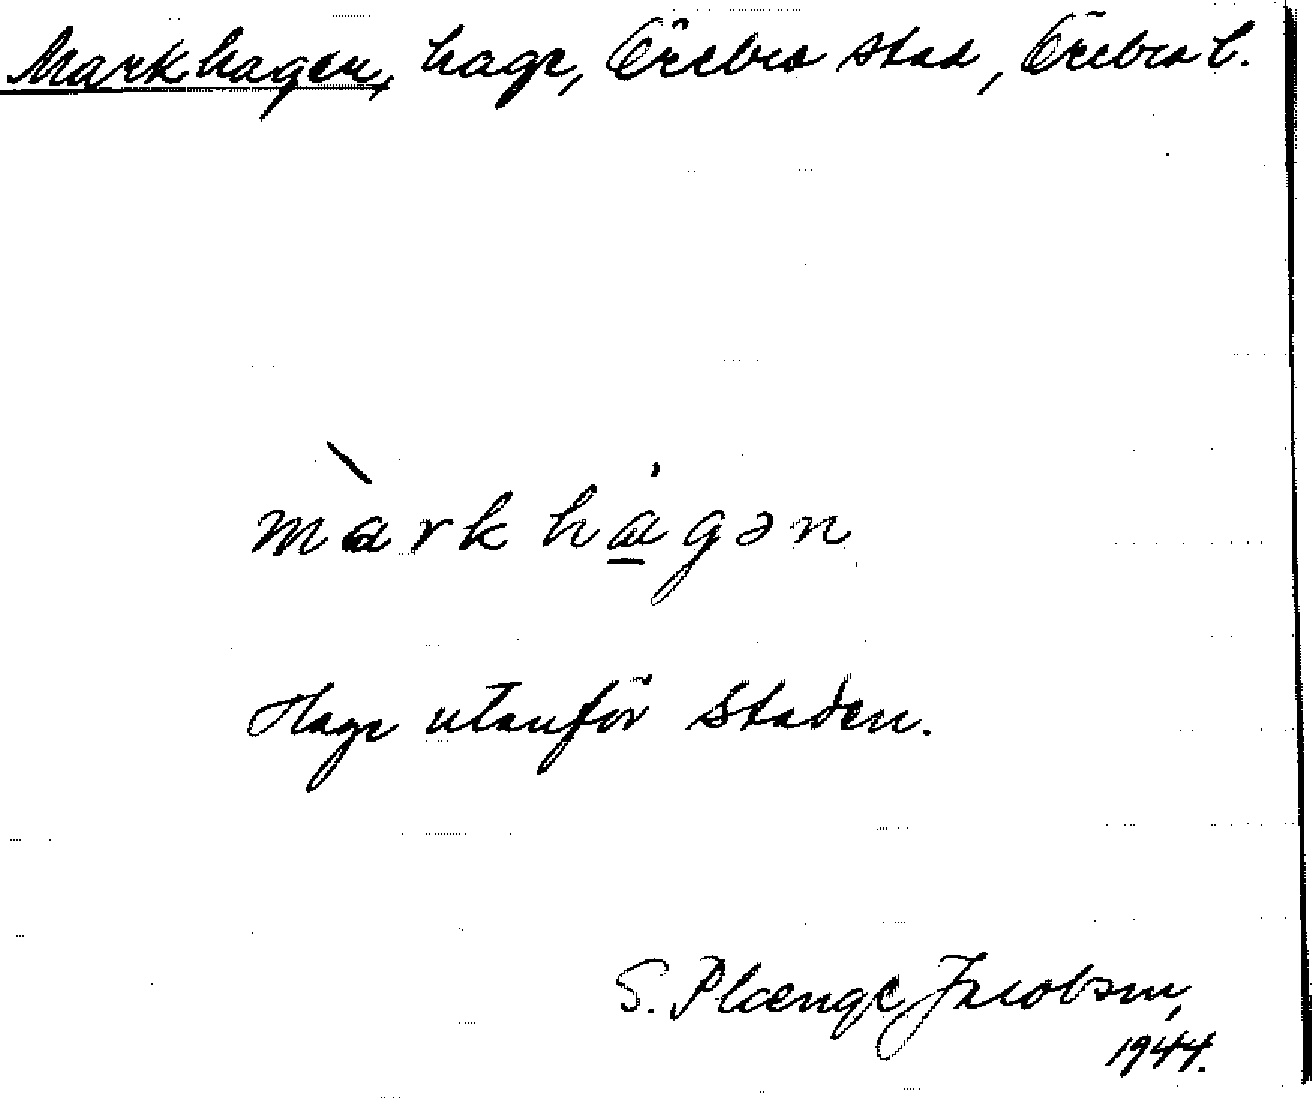 Markhagen, hage, Örebro stad, Örebro l.
màrkhagən
Hage utanför staden.
S. Plænge Jacobson,
1944.